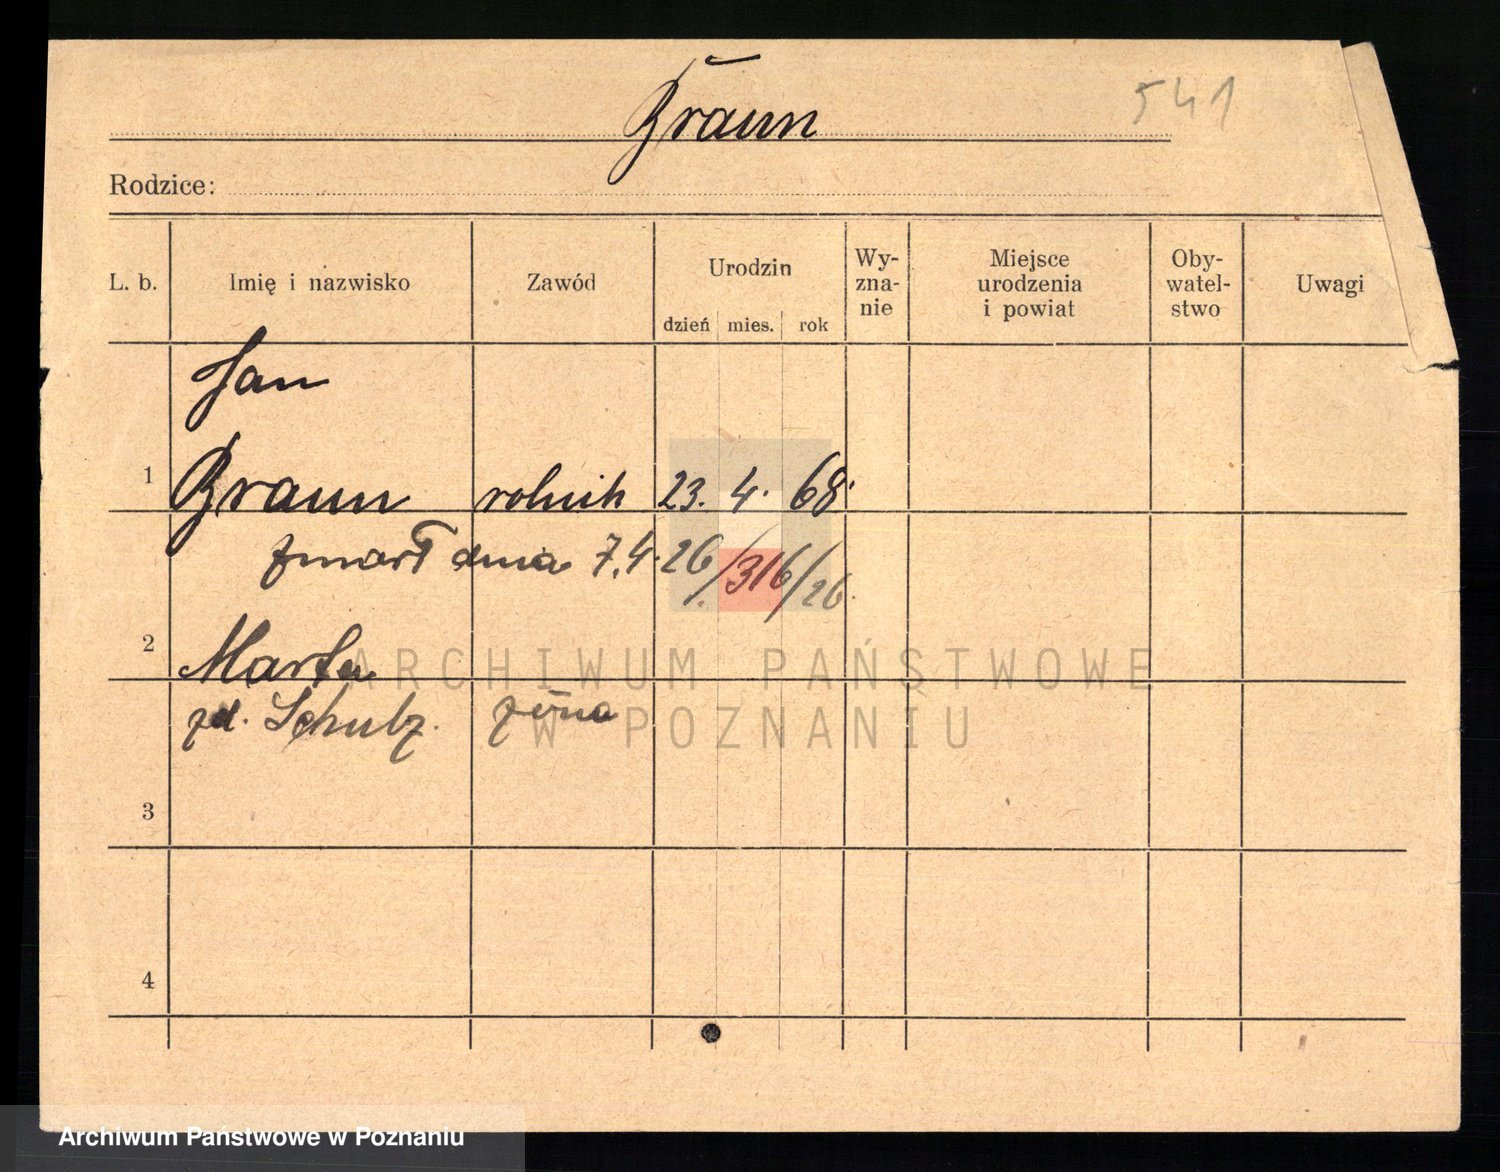 541
Braun
Rodzice:
L. b. Imię i nazwisko Zawód Urodzin dzień mies. rok Wy-zna-nie Miejsce urodzenia i powiat Oby-watel-stwo Uwagi
Jan
1 Braun rolnik 23. 4. 68.
zmarł dnia 7.4.26/316/26.
2 Marta
zd. Schulz. żona
3
4
ARCHIWUM PAŃSTWOWE
W POZNANIU
Archiwum Państwowe w Poznaniu